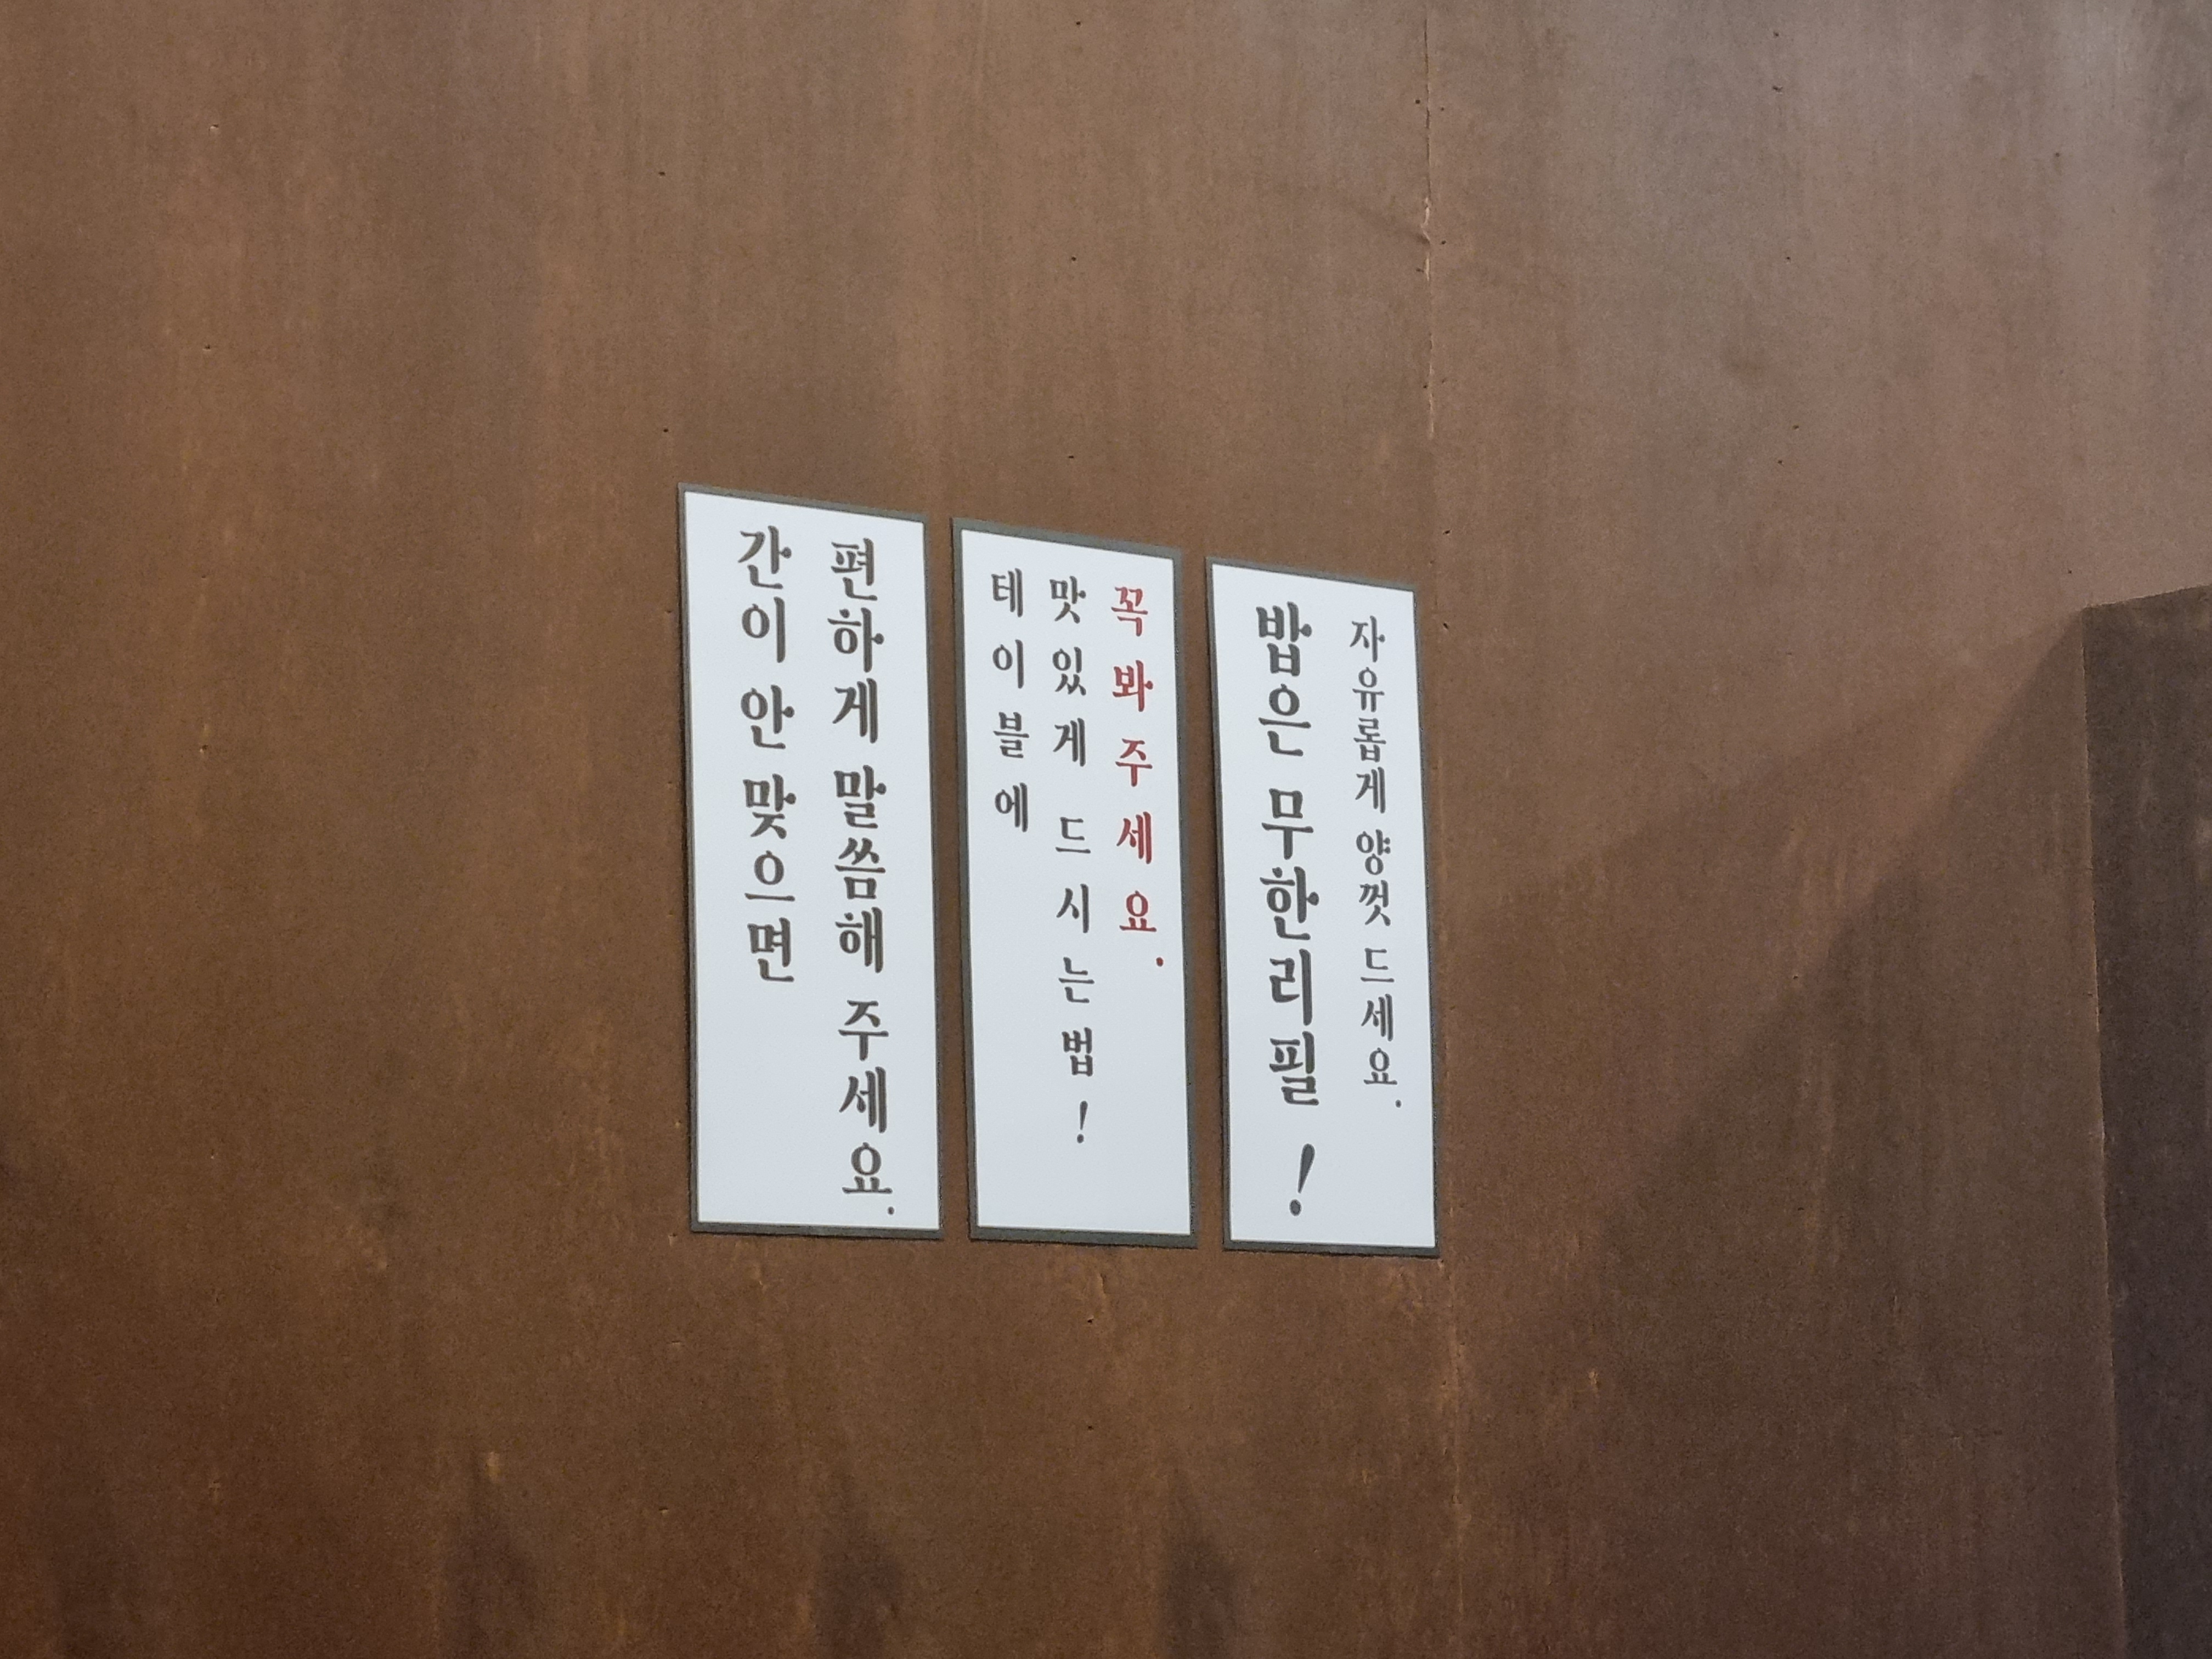 간이 안 맞으면
편하게 말씀해 주세요.
테이블에
맛있게 드시는법!
꼭봐주세요.
밥은 무한리필!
자유롭게 양껏 드세요.